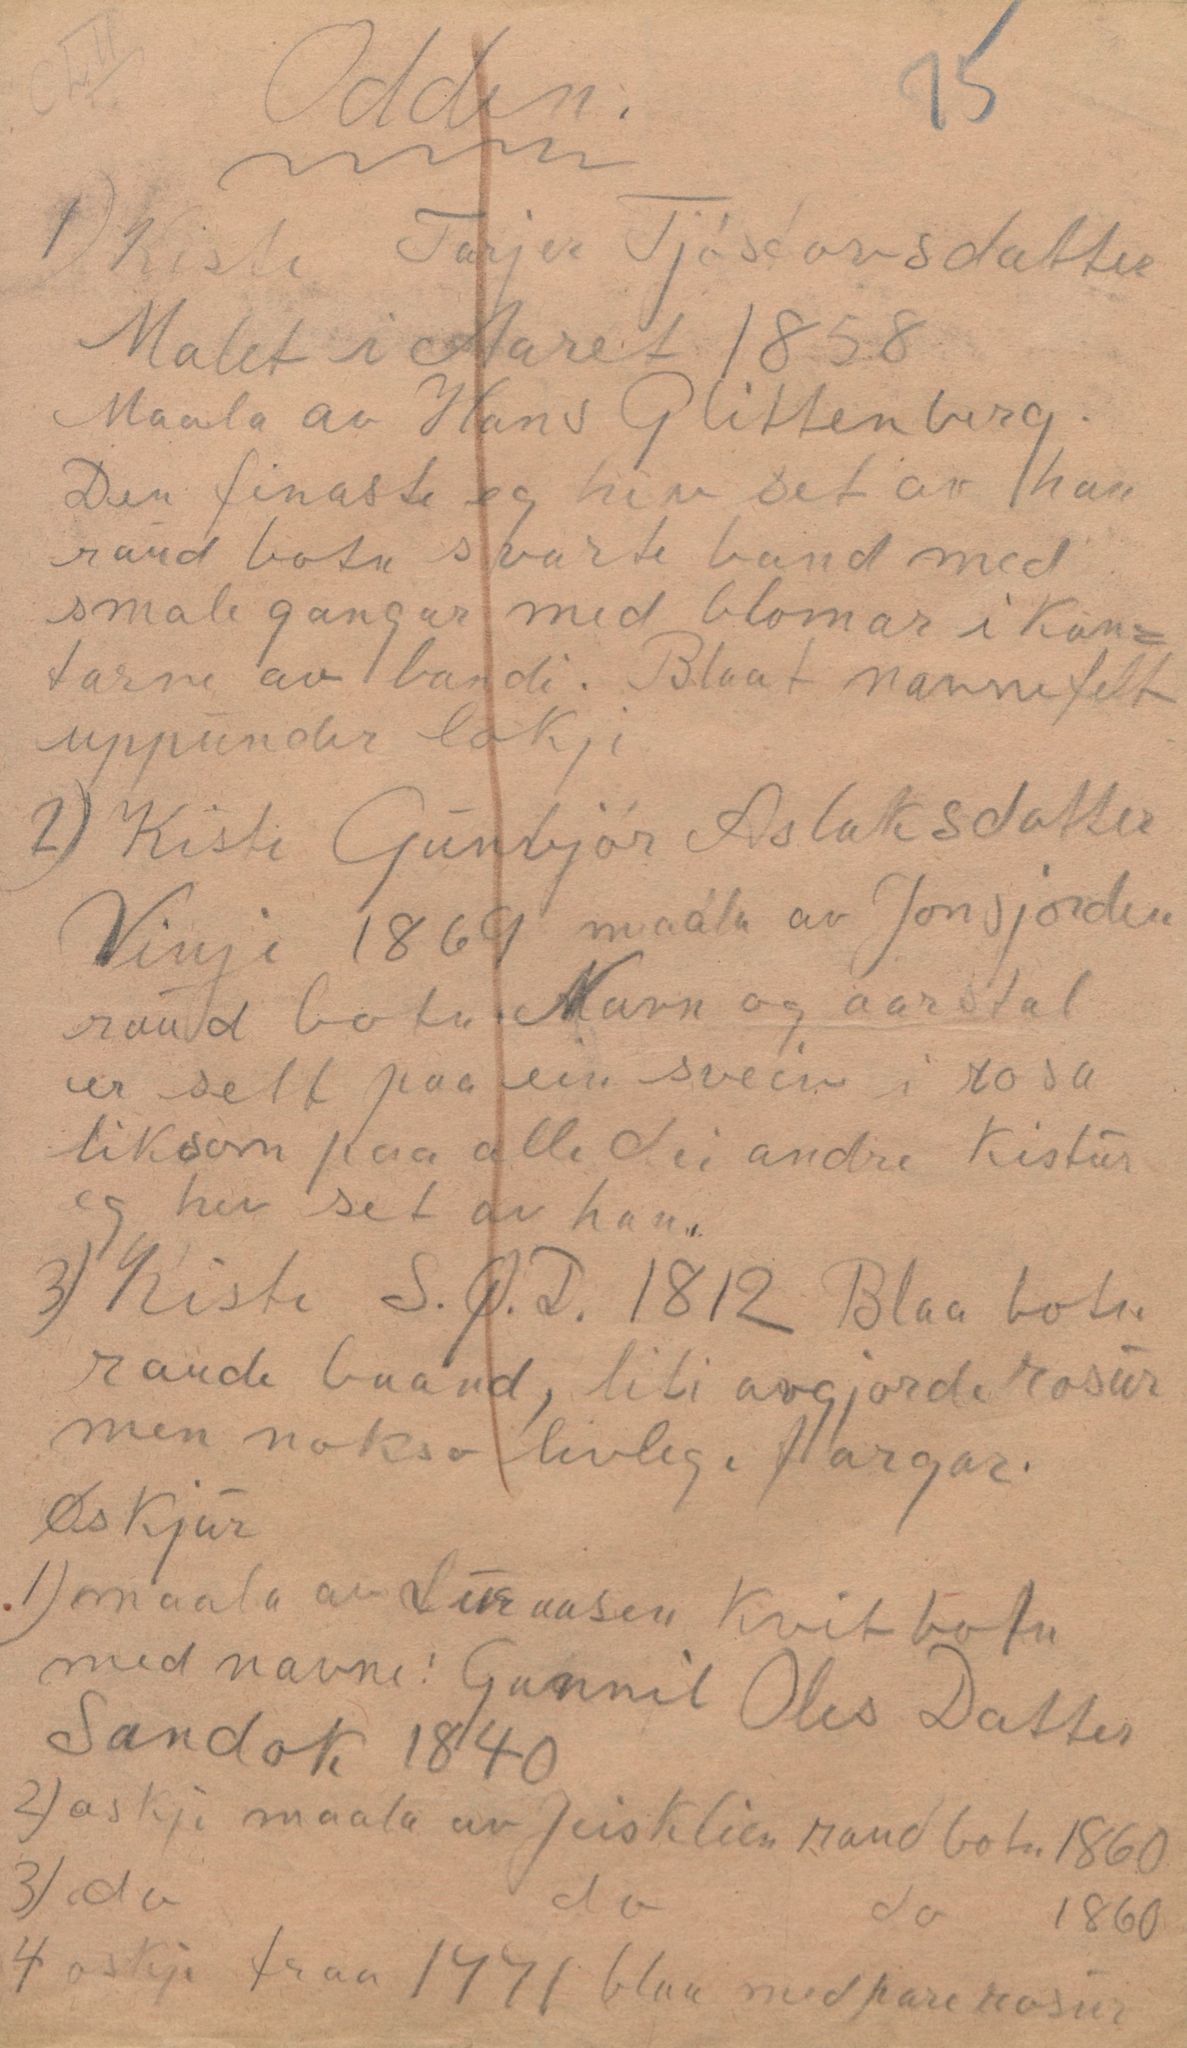 CLII
15
Odden.
1) Kiste Tarjer Tjóstovsdatter
Malet i Aaret 1858
Maala av Hans Glittenberg.
Den finaste eg hev set av han
raud botn svarte band med
smale gangar med blomar i kan=
tarne av bandi. Blaat navnefelt
uppunder lokji
2) Kiste Gunbjór Aslaksdatter
Vinje 1869 maala av Jonsjorden
raud botn Navn og aarstal
er sett paa ein svein i rosa
liksom paa alle dei andre kistur
eg hev set av han.
3) Kiste S. O. D. 1812 Blaa botn
raude baand, liti avgjorde rosur
men nokso livlege fargar.
Øskjur
1) maala av Luraasen kvit botn
med navne: Gunnil Oles Datter
Sandok 1840
2) oskje maala av Jeisklien raud botn 1860
3) do do do 1860
4 oskje fraa 1771 blaa med pare rosur